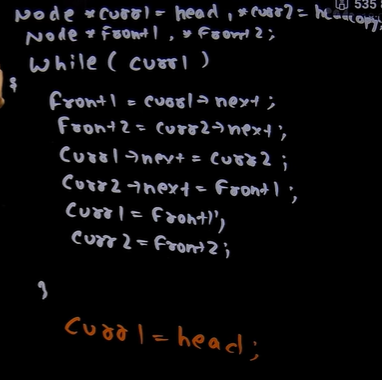 Node *curr1 = head, *curr2 = headcopy;
Node *front1, *front2;
while( curr1 )
{
front1 = curr1->next;
front2 = curr2->next;
curr1->next = curr2;
curr2->next = front1;
curr1 = front1;
curr2 = front2;
}
curr1 = head;
535